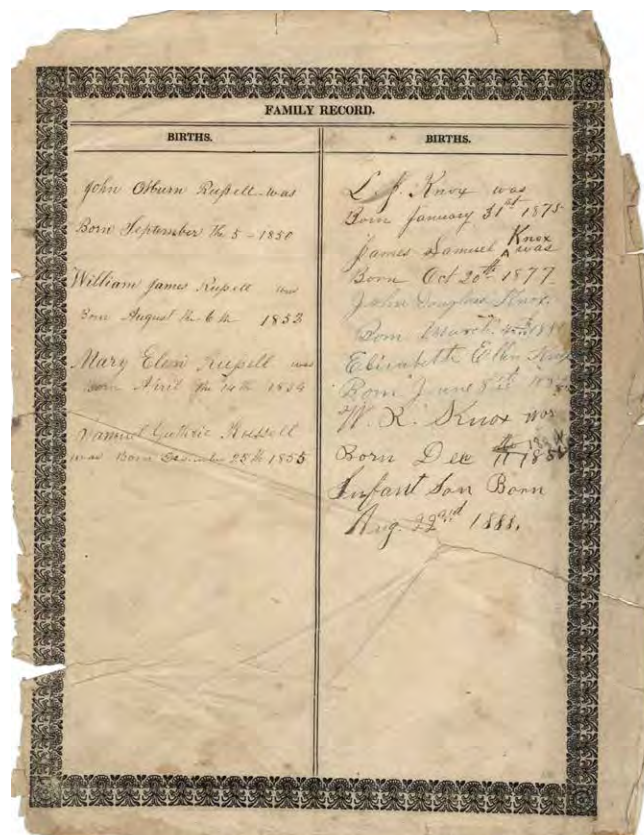 FAMILY RECORD.
BIRTHS.
John Osburn Russell was
Born September the 5 - 1850
William James Russell was
Born August the 6th 1852
Mary Elen Russell was
Born April the 14th 1854
Samuel Guthrie Russell
was Born December 25th 1855
BIRTHS.
L. J. Knox was
Born January 31st 1875
James Samuel Knox was
Born Oct 20th 1877
John Douglas Knox.
Born March
Elizabeth Ellen Knox
Born June
W. R. Knox was
Born Dec
Infant Son Born
Aug. 22nd 1888.